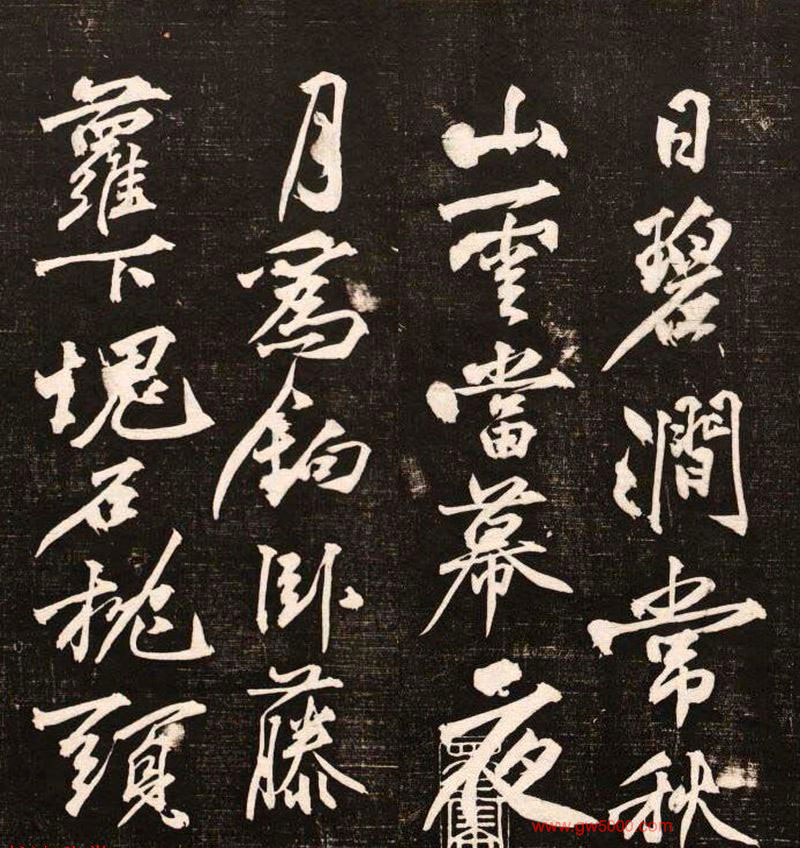 日碧澗常秋
山雲當幕夜
月為鉤臥藤
蘿下塊石枕頭
www.gw5000.com